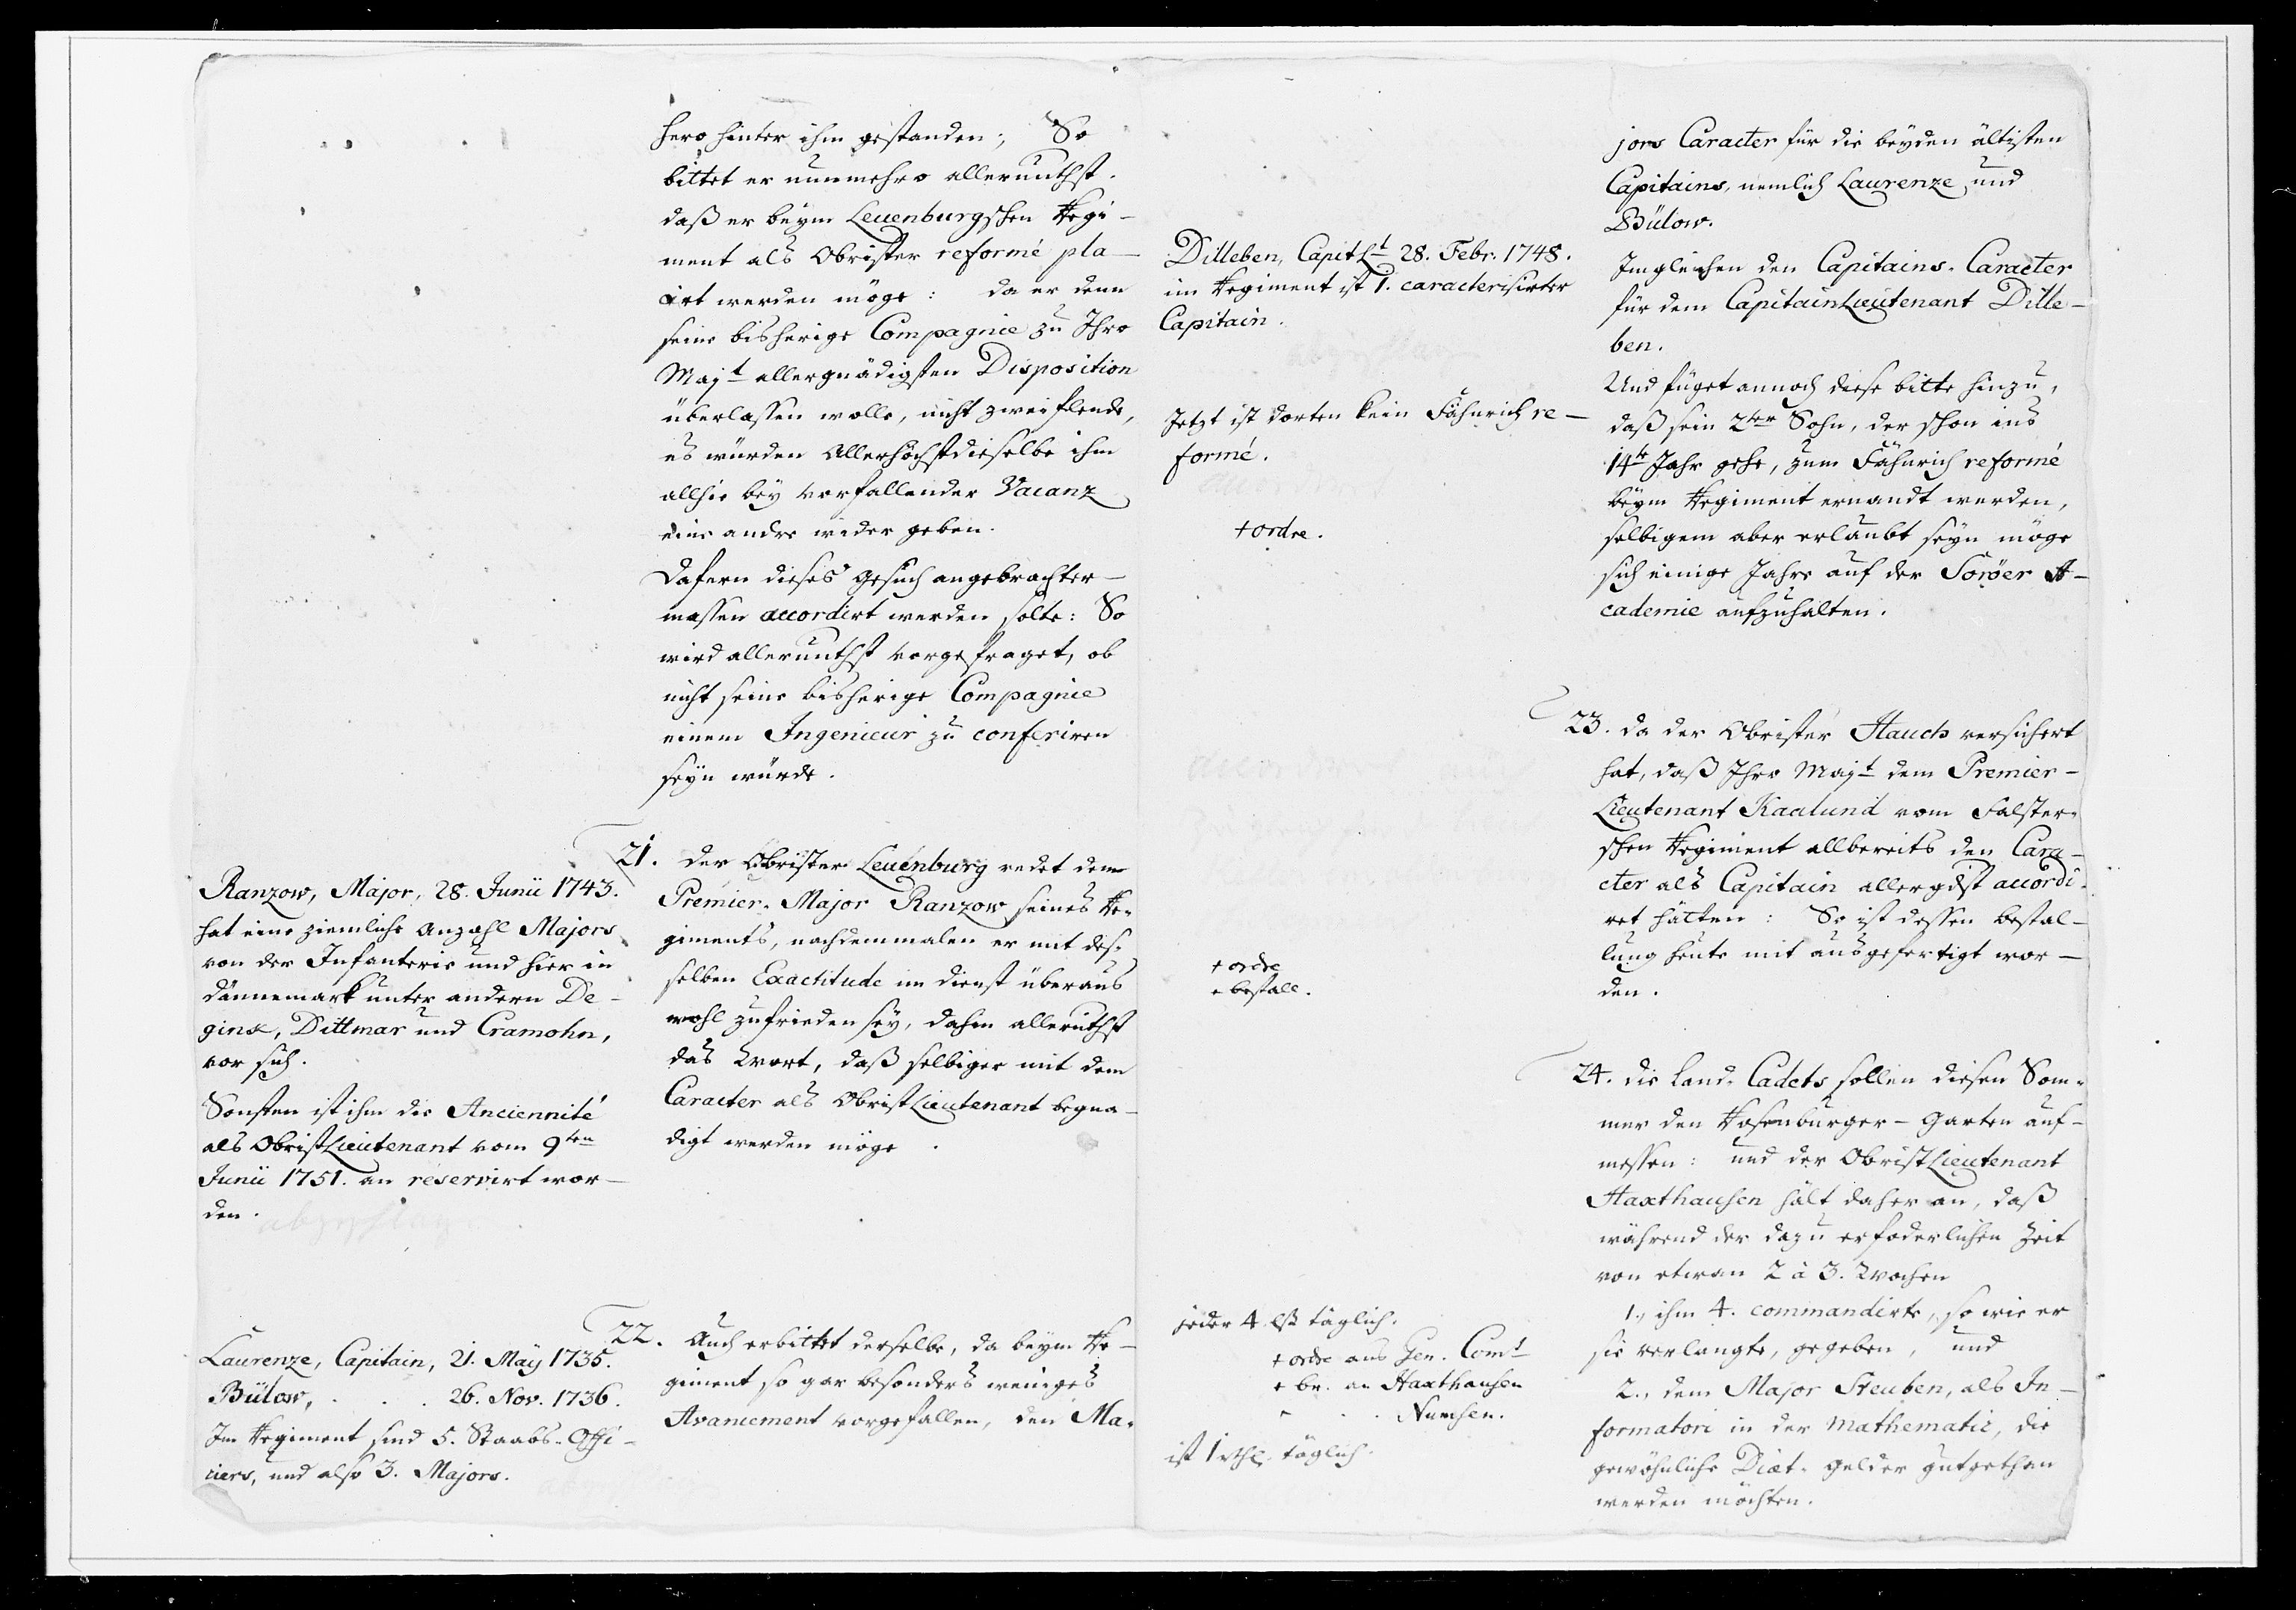 hero hinter ihm gestanden; So
bittet er nunmehro allerunthst.
daß er beym Leuenburgschen Regi-
ment als Obrister reformé pla-
cirt werden möge: da er denn
seine bisherige Compagnie zu Ihro
Majt allergnädigsten Disposition
überlaßen wolle, nicht zweiflende,
es würden Allerhöchstdieselbe ihm
allhie bey vorfallender Vacanz
eine andre wider geben.
Dafern dieses Gesuch angebrachter-
maßen accordirt werden solte: So
wird allerunthst vorgefraget, ob
nicht seine bisherige Compagnie
einem Ingenieur zu conferiren
seyn würde.
Ranzow, Major, 28. Junii 1743.
hat eine ziemliche Anzahl Majors
von der Infanterie und hier in
Dännemark unter andern De-
ginx, Dittmar und Cramohn,
vor sich.
Sonsten ist ihm die Anciennité
als ObristLieutenant vom 9ten
Junii 1751. an reservirt wor-
den.
21. Der Obrister Leuenburg redet dem
Premier-Major Ranzow seines Re-
giments, nachdemmalen er mit des-
selben Exactitude im Dienst überaus
wohl zufrieden sey, dahin allerunthst
das Wort, daß selbiger mit dem
Caracter als ObristLieutenant begna-
digt werden möge.
Laurenze, Capitain, 21. Maÿ 1735.
Bülow, . . . 26. Nov. 1736.
Im Regiment sind 5. Staabs-Offi-
ciers, und also 3. Majors.
22. Auch erbittet derselbe, da beym Re-
giment so gar besonders weniges
Avancement vorgefallen, den Ma-
jors Caracter für die beyden ältisten
Capitains, nemlich Laurenze und
Bülow.
Dilleben, CapitLt 28. Febr. 1748.
im Regiment ist 1. caracterisirter
Capitain.
Imgleichen den Capitains-Caracter
für dem CapitainLieutenant Dille-
ben.
Jetzt ist dorten kein Fähnrich re-
formé.
+ ordre.
Und füget annoch diese bitte hinzu,
daß sein 2ter Sohn, der schon ins
14te Jahr gehe, zum Fähnrich reformé
beym Regiment ernandt werden,
selbigem aber erlaubt seyn möge
sich einige Jahre auf der Soröer A-
cademie aufzuhalten.
23. Da der Obrister Hauch versichert
hat, daß Ihro Majt dem Premier-
Lieutenant Kaalund vom Falster-
schen Regiment allbereits den Cara-
cter als Capitain allergdst accordi-
ret hätten: So ist deßen bestal-
lung heute mit ausgefertigt wor-
den.
+ ordre
+ bestall.
24. Die Land-Cadets sollen diesen Som-
mer den Rosenburger-Garten auf-
meßen: und der ObristLieutenant
Haxthausen hält daher an, daß
während der dazu erfoderlichen Zeit
von etwan 2 à 3. Wochen
1., ihm 4. commandirte, so wie er
sie verlangte, gegeben, und
2., dem Major Steuben, als In-
formatori in der Mathematic, die
gewöhnliche Diæt-Gelder gutgethan
werden möchten.
jeder 4 ß täglich.
+ ordre ans Gen. Comt
+ br. an Haxthausen
Numsen.
ist 1 rthl. täglich.